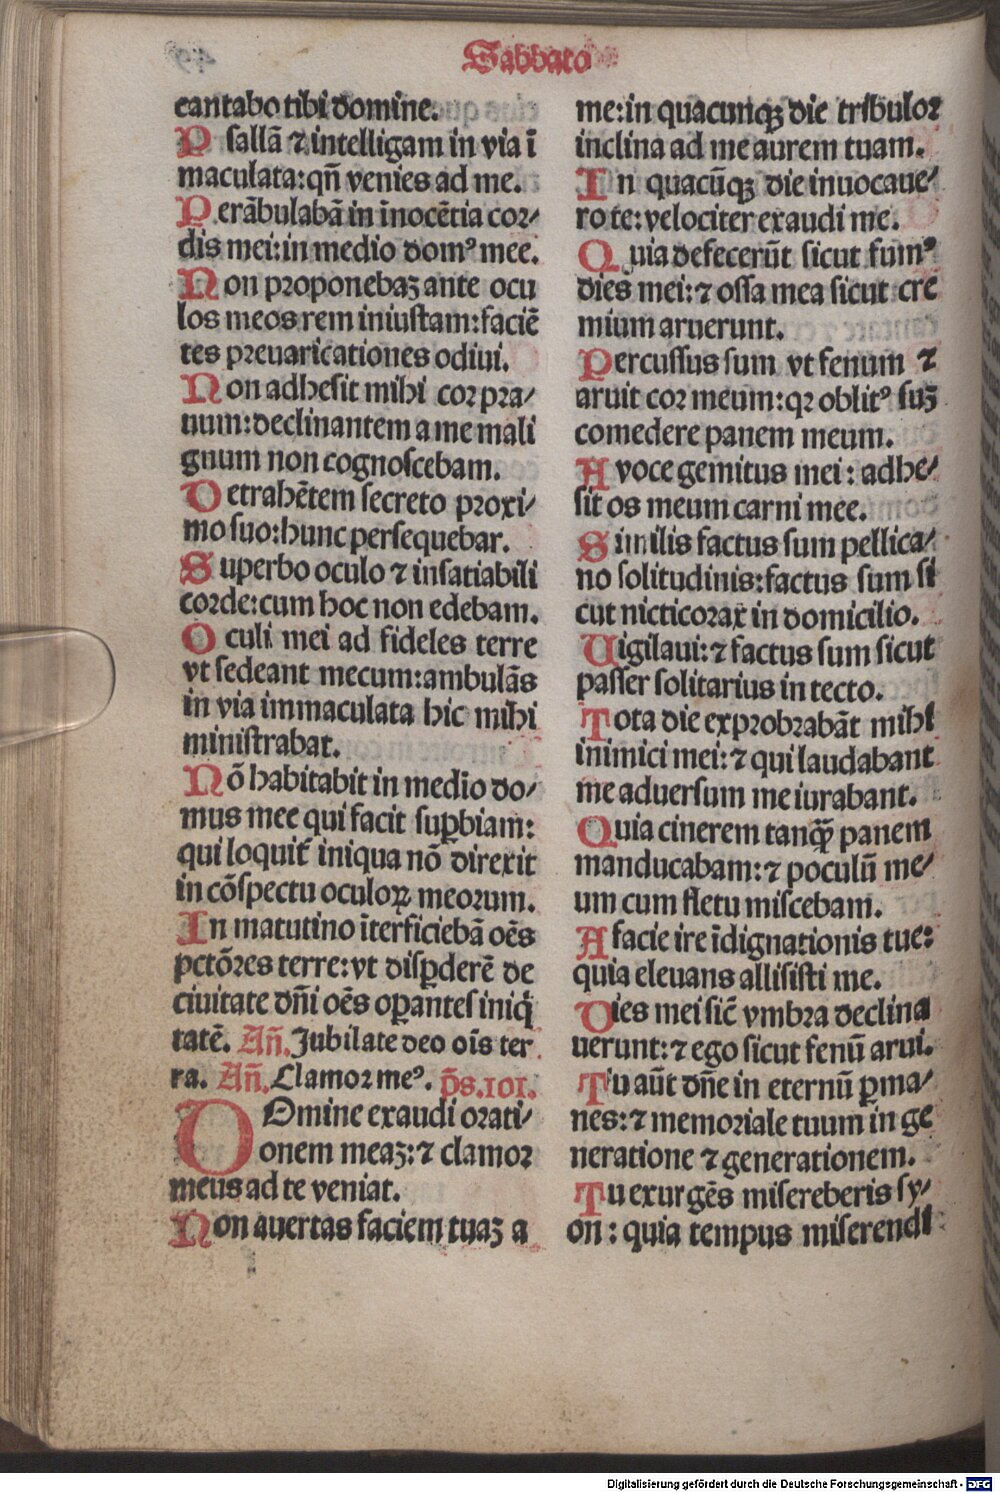 Sabbato
cantabo tibi domine.
Psallā ⁊ intelligam in via ī
maculata: qñ venies ad me.
Perābulabā in īnocētia cor⸗
dis mei: in medio domꝰ mee.
Non proponebaꝫ ante ocu
los meos rem iniustam: faciē
tes preuaricationes odiui.
Non adhesit mihi cor pra⸗
uum: declinantem a me mali
gnum non cognoscebam.
Detrahētem secreto proxi⸗
mo suo: hunc persequebar.
Superbo oculo ⁊ insatiabili
corde: cum hoc non edebam.
Oculi mei ad fideles terre
vt sedeant mecum: ambulās
in via immaculata hic mihi
ministrabat.
Nō habitabit in medio do⸗
mus mee qui facit suꝑbiam:
qui loquit᷑ iniqua nō direxit
in cōspectu oculoꝝ meorum.
In matutino īterficiebā oēs
pctōres terre: vt disꝑderē de
ciuitate dñi oēs oꝑantes iniq̇
tatē. Añ. Jubilate deo oīs ter
ra. Añ. Clamor meꝰ. p̄s. 101.
Domine exaudi orati⸗
onem meaꝫ: ⁊ clamor
meus ad te veniat.
Non auertas faciem tuaꝫ a
me: in quacunqꝫ die tribulor
inclina ad me aurem tuam.
In quacūqꝫ die inuocaue⸗
ro te: velociter exaudi me.
Quia defecerūt sicut fumꝰ
dies mei: ⁊ ossa mea sicut cre
mium aruerunt.
Percussus sum vt fenum ⁊
aruit cor meum: qꝛ oblitꝰ suꝫ
comedere panem meum.
A voce gemitus mei: adhe⸗
sit os meum carni mee.
Similis factus sum pellica⸗
no solitudinis: factus sum si
cut nicticorax in domicilio.
Uigilaui: ⁊ factus sum sicut
passer solitarius in tecto.
Tota die exprobrabāt mihi
inimici mei: ⁊ qui laudabant
me aduersum me iurabant.
Quia cinerem tanqꝫ̄ panem
manducabam: ⁊ poculū me⸗
um cum fletu miscebam.
A facie ire īdignationis tue:
quia eleuans allisisti me.
Dies mei sic̄ vmbra declina
uerunt: ⁊ ego sicut fenū arui.
Tu aūt dñe in eternū ꝑma⸗
nes: ⁊ memoriale tuum in ge
neratione ⁊ generationem.
Tu exurgēs misereberis sy⸗
on: quia tempus miserendi
Digitalisierung gefördert durch die Deutsche Forschungsgemeinschaft - DFG